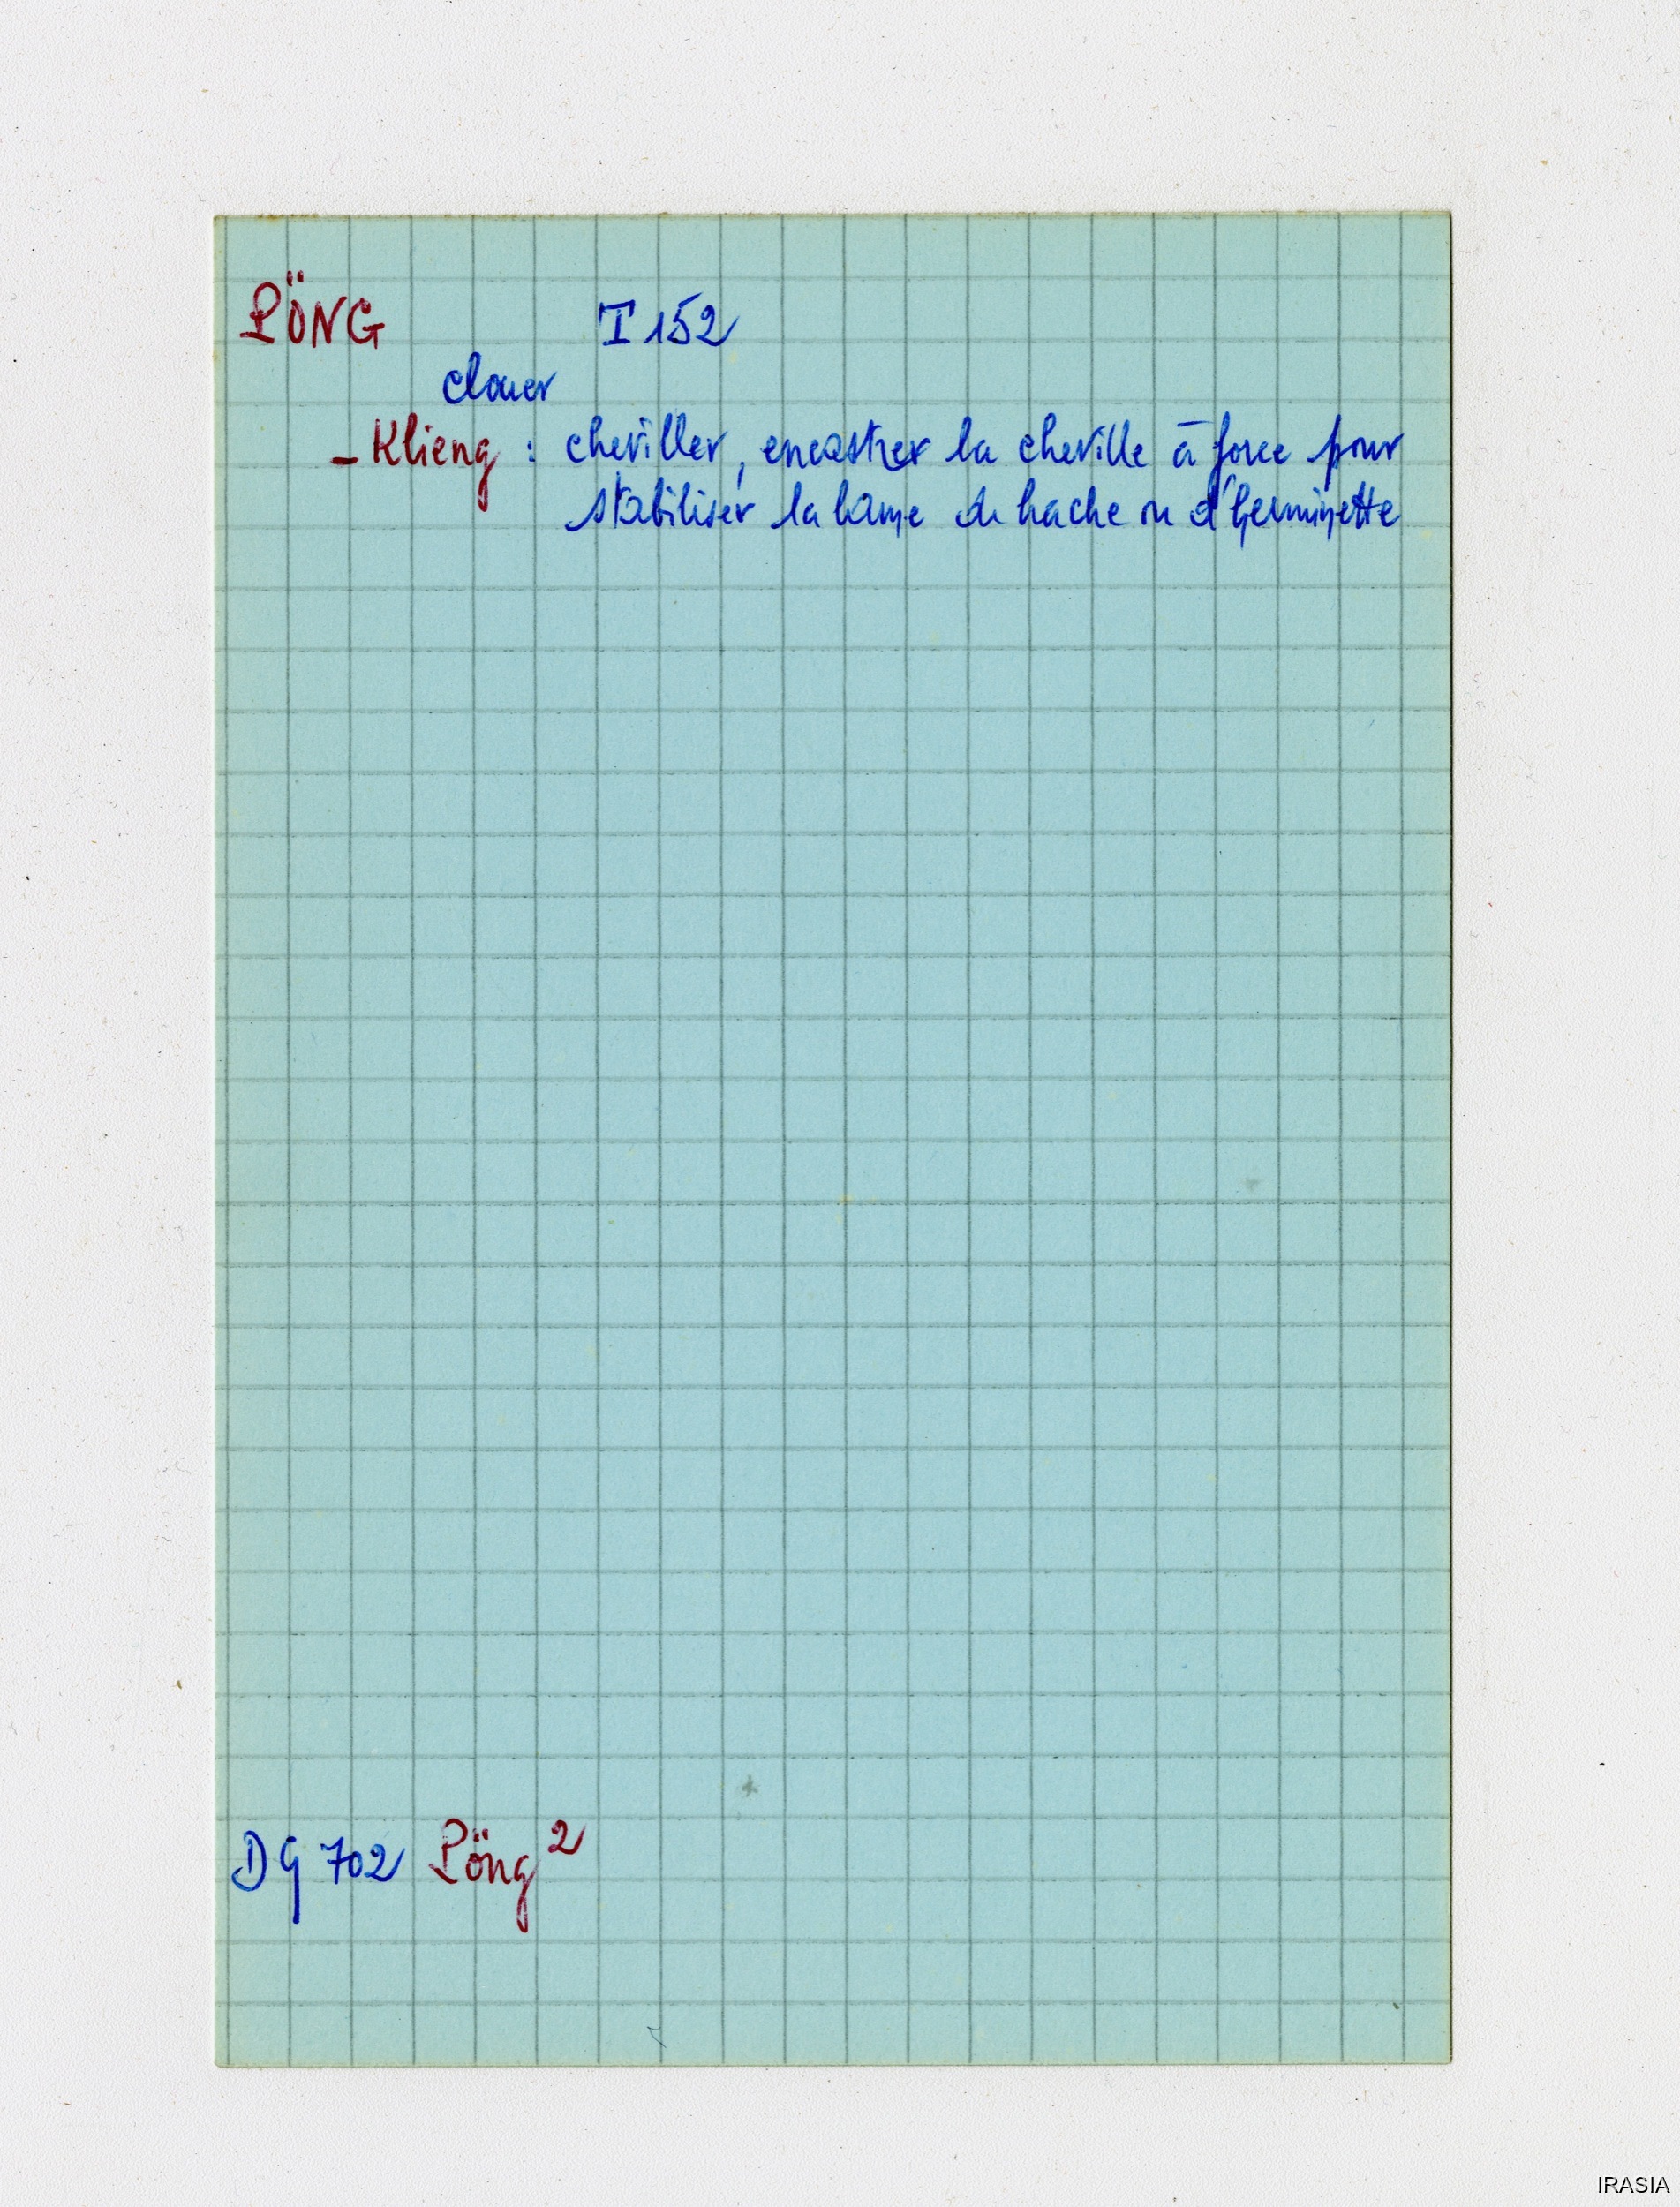 PÖNG T 152
clouer
- Klieng : cheviller, encastrer la cheville à force pour
stabiliser la lame de hache ou d'herminette
DG 702 Pöng 2
IRASIA